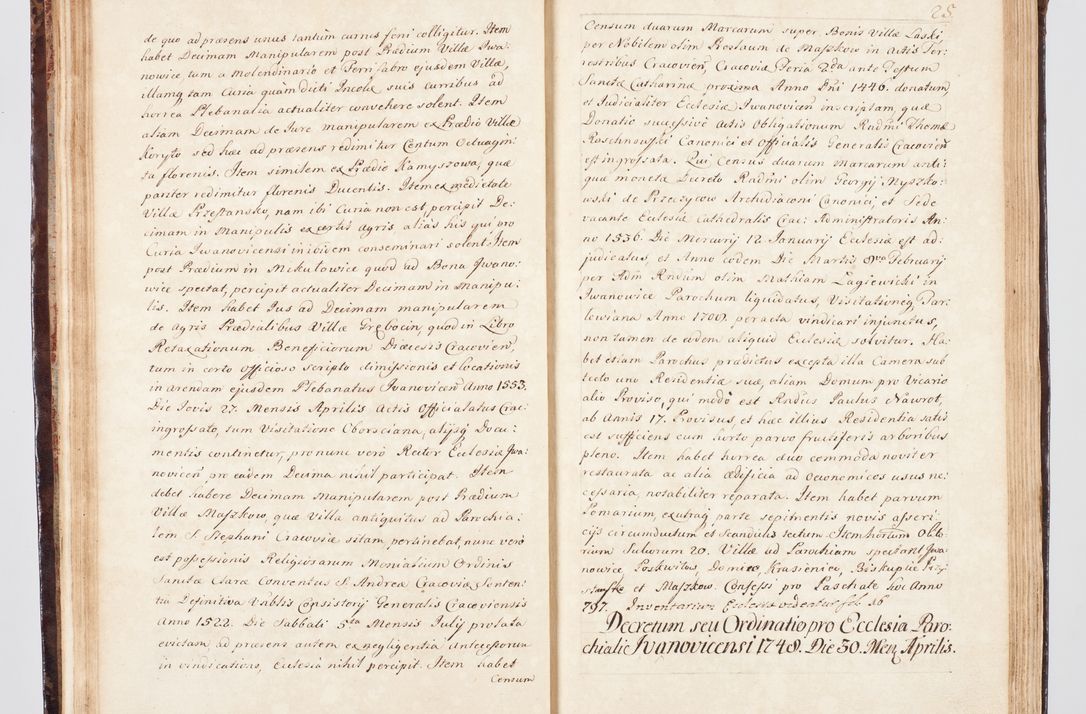 de quo ad præsens unus tantum currus fœni colligitur. Item
habet Decimam Manipularem post Prædium Villæ Iwa-
nowice tum a Molendinario et Ferrifabro ejusdem Villæ,
illamq̃ tam Curia quàm dicti Incolæ suis curribus ad
horrea Plebanalia actualiter convehere solent. Item
aliam Decimam de Iure manipularem ex Prædio Villæ
Koryto sed hæc ad præsens redimitur Centum Octuagin-
ta florenis. Item similem ex Prædio Kamyszowa, quæ
pariter redimitur florenis Ducentis. Item ex medietate
Villæ Przestansko, nam ibi Curia non est, percipit De-
cimam in Manipulis ex certis agris, alias his qui pro
Curia Iwanovicensi inibidem conseminari solent. Item
post Prædium in Mikulowice quod ad Bona Iwano-
wice spectat, percipit actualiter Decimam in Manipu-
lis. Item habet Jus ad Decimam manipularem
de Agris Prædialibus Villæ Grębocin, quod in Libro
Retaxationum Beneficiorum Diæcesis Cracovień,
tum in certo officioso scripto dimissionis et locationis
in arendam ejusdem Plebanatus Iwanoviceń Anno 1553.
Die Jovis 27. Mensis Aprilis Actis Officialatus Crac:
ingrossato, tum Visitatione Oborsciana, alijsq̃ Docu-
mentis continetur, pro nunc verò Rector Ecclesiæ Iwa-
noviceń pro eadem Decima nihil participat. Item
debet habere Decimam Manipularem post Prædium
Villæ Maszkow, quæ Villa antiquitus ad Parochia-
lem S. Stephani Cracoviæ sitam, pertinebat, nunc verò
est possessionis Religiosarum Monialium Ordinis
Sanctæ Claræ Conventus S. Andreæ Cracoviæ Senten-
tia Definitiva Nablis Consistorij Generalis Cracoviensis
Anno 1522. Die Sabbati 5ta Mensis Julij prolata
evictam, ad præsens autem ex negligentia Antecessorum
in vindicationes, Ecclesia nihil percipit. Item habet
Censum
25.
Censum duarum Marcarum super Bonis Villæ Laski
per Nobilem olim Proslaum de Maszkow in Actis Ter-
restribus Cracovień, Cracoviæ Feria 2da ante Festum
Sanctæ Catharinæ proxima Anno Dńi 1446. donatum
et Judicialiter Ecclesiæ Iwanoviceń inscriptam, quæ
Donatio successivè Actis Obligationum Radńi Thomæ
Roschnouski Canonici et Officialis Generalis Cracovień
est ingrossata. Qui Census duarum Marcarum anti-
qua moneta Decreto Radńi olim Georgij Myszko-
wski de Przeczycow Archidiaconi Canonici, et Sede
vacante Ecclesiæ Cathedralis Crac: Administratoris An-
no 1536. Die Mercurij 12. Januarij Ecclesiæ est ad-
judicatus, et Anno eodem Die Martis 8va Februarij
per Adm Rndum olim Mathiam Lagiewicki in
Iwanowice Parochum liquidatus, Visitationeq̃ Dar-
lewiana Anno 1709. peracta vindicari injunctus,
non tamen de eodem aliquid Ecclesiæ solvitur. Ha-
bet etiam Parochus prædictus excepta illa Camera sub
tecto uno Residentiæ suæ, aliam Domum pro Vicario
alio Proviso, qui modò est Rndus Paulus Nawrot,
ab Annis 17. Provisus, et hæc illius Residentia satis
est sufficiens cum horto parvo fructiferis arboribus
pleno. Item habet horrea duo commoda noviter
restaurata ac alia ædificia ad œconomicos usus ne-
cessaria, notabiliter reparata. Item habet parvum
Pomarium, ex utraq̃ parte sepimentis novis asseri-
cijs circumductum et Scandulis tectum. Item hortum Olito-
rium Sulcorum 20. Villæ ad Parochiam spectant Iwa-
nowice, Poskwitow, Domice, Krasienice, Biskupice Przy-
stansko et Maszkow. Confessi pro Paschate hoc Anno
797. Inventarium Ecclesiæ videatur fol. 36
Decretum seu Ordinatio pro Ecclesia Paro-
chiali Iwanovicensi 1748. Die 30. Mens Aprilis.